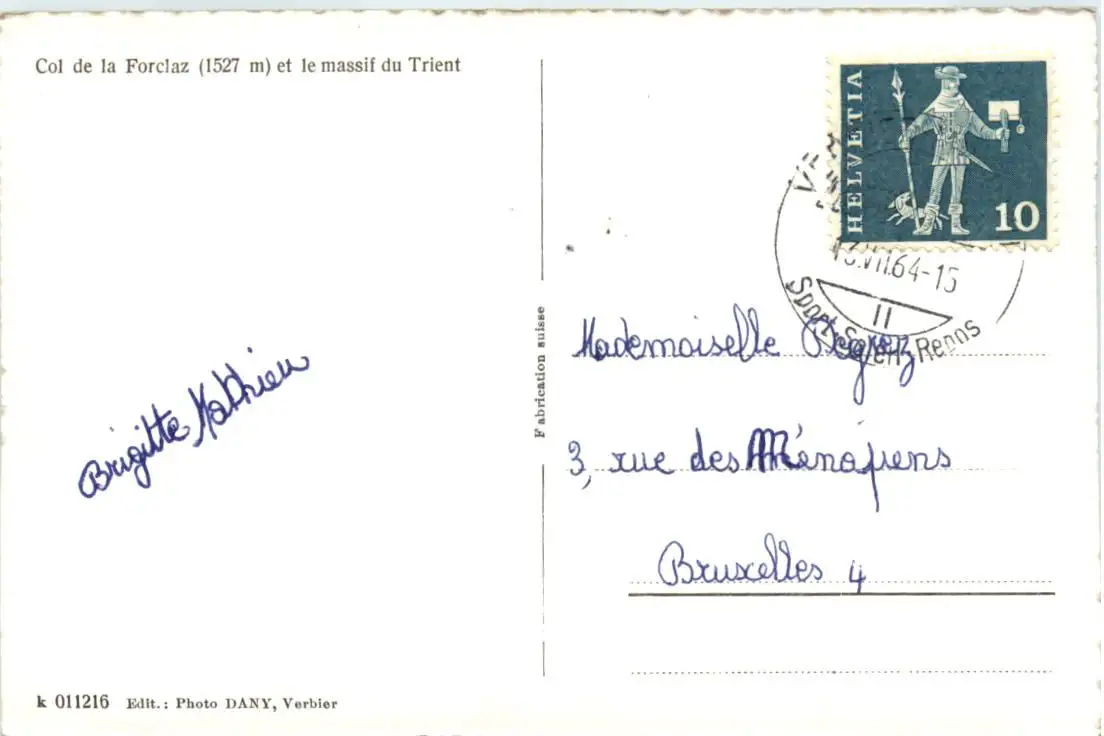 Col de la Forclaz (1527 m) et le massif du Trient
HELVETIA
10
13.VII.64-15
II
Sport-Soleil-Repos
Fabrication suisse
Mademoiselle
3, rue des Ménapiens
Bruxelles 4
Brigitte Mathieu
k 011216 Edit.: Photo DANY, Verbier